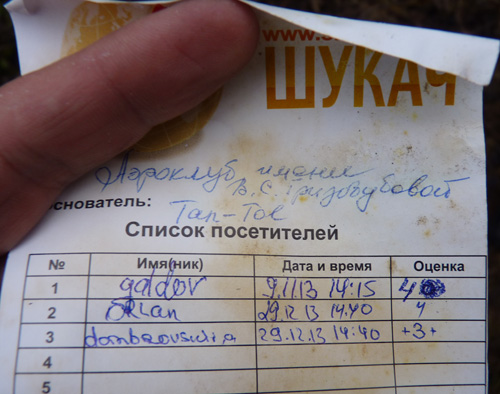 www.s
ШУКАЧ
Аэроклуб имени
В.С. Гризодубовой
снователь: Tan-Tol
Список посетителей
№ Имя(ник) Дата и время Оценка
1 galdor 9.11.13 14:15 4
2 ORLan 29.12.13 14.40 4
3 dombrovschia 29.12.13 14:40 +3+
4
5